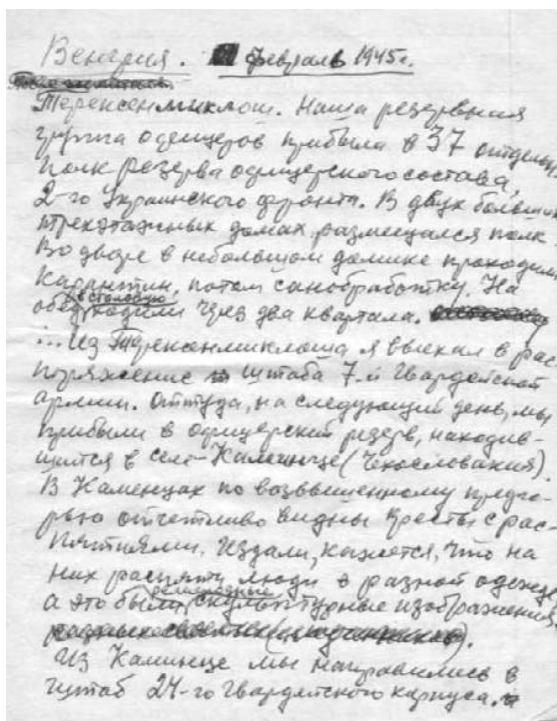 Венгрия. Февраль 1945г.
Теренсенмиклош. Наша резервная
группа офицеров прибыла в 37 отдельн
полк резерва офицерского состава
2-го Украинского фронта. В двух больших
трехэтажных домах размещался полк
Во дворе в небольшом домике проходили
карантин, потом санобработку. На
обед в столовую ходили через два квартала.
... Из Теренсенмиклоша я выехал в рас-
поряжение штаба 7-й Гвардейской
армии. Оттуда, на следующий день, мы
прибыли в офицерский резерв, находив-
шийся в селе Каменице (Чехословакия).
В Каменцах по возвышенному предго-
рью отчетливо видны кресты с рас-
пятиями. Издали, кажется, что на
них распяты люди в разной одежде,
а это были религиозные скульптурные изображения
Из Каменце мы направились в
штаб 24-го Гвардейского корпуса.